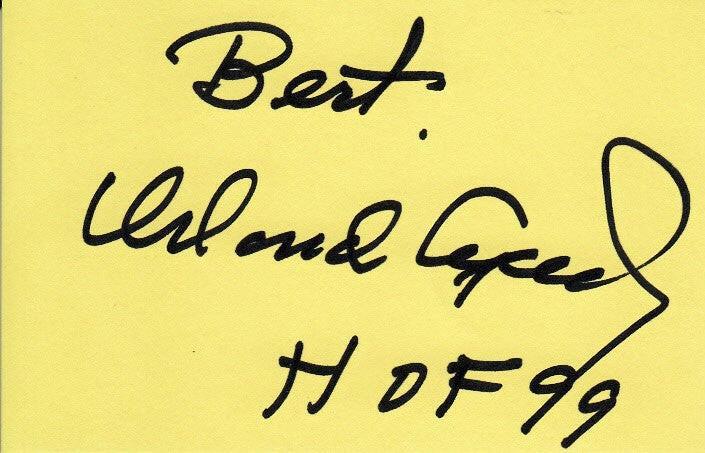 Bert:
Orlando Cepeda
HOF 99